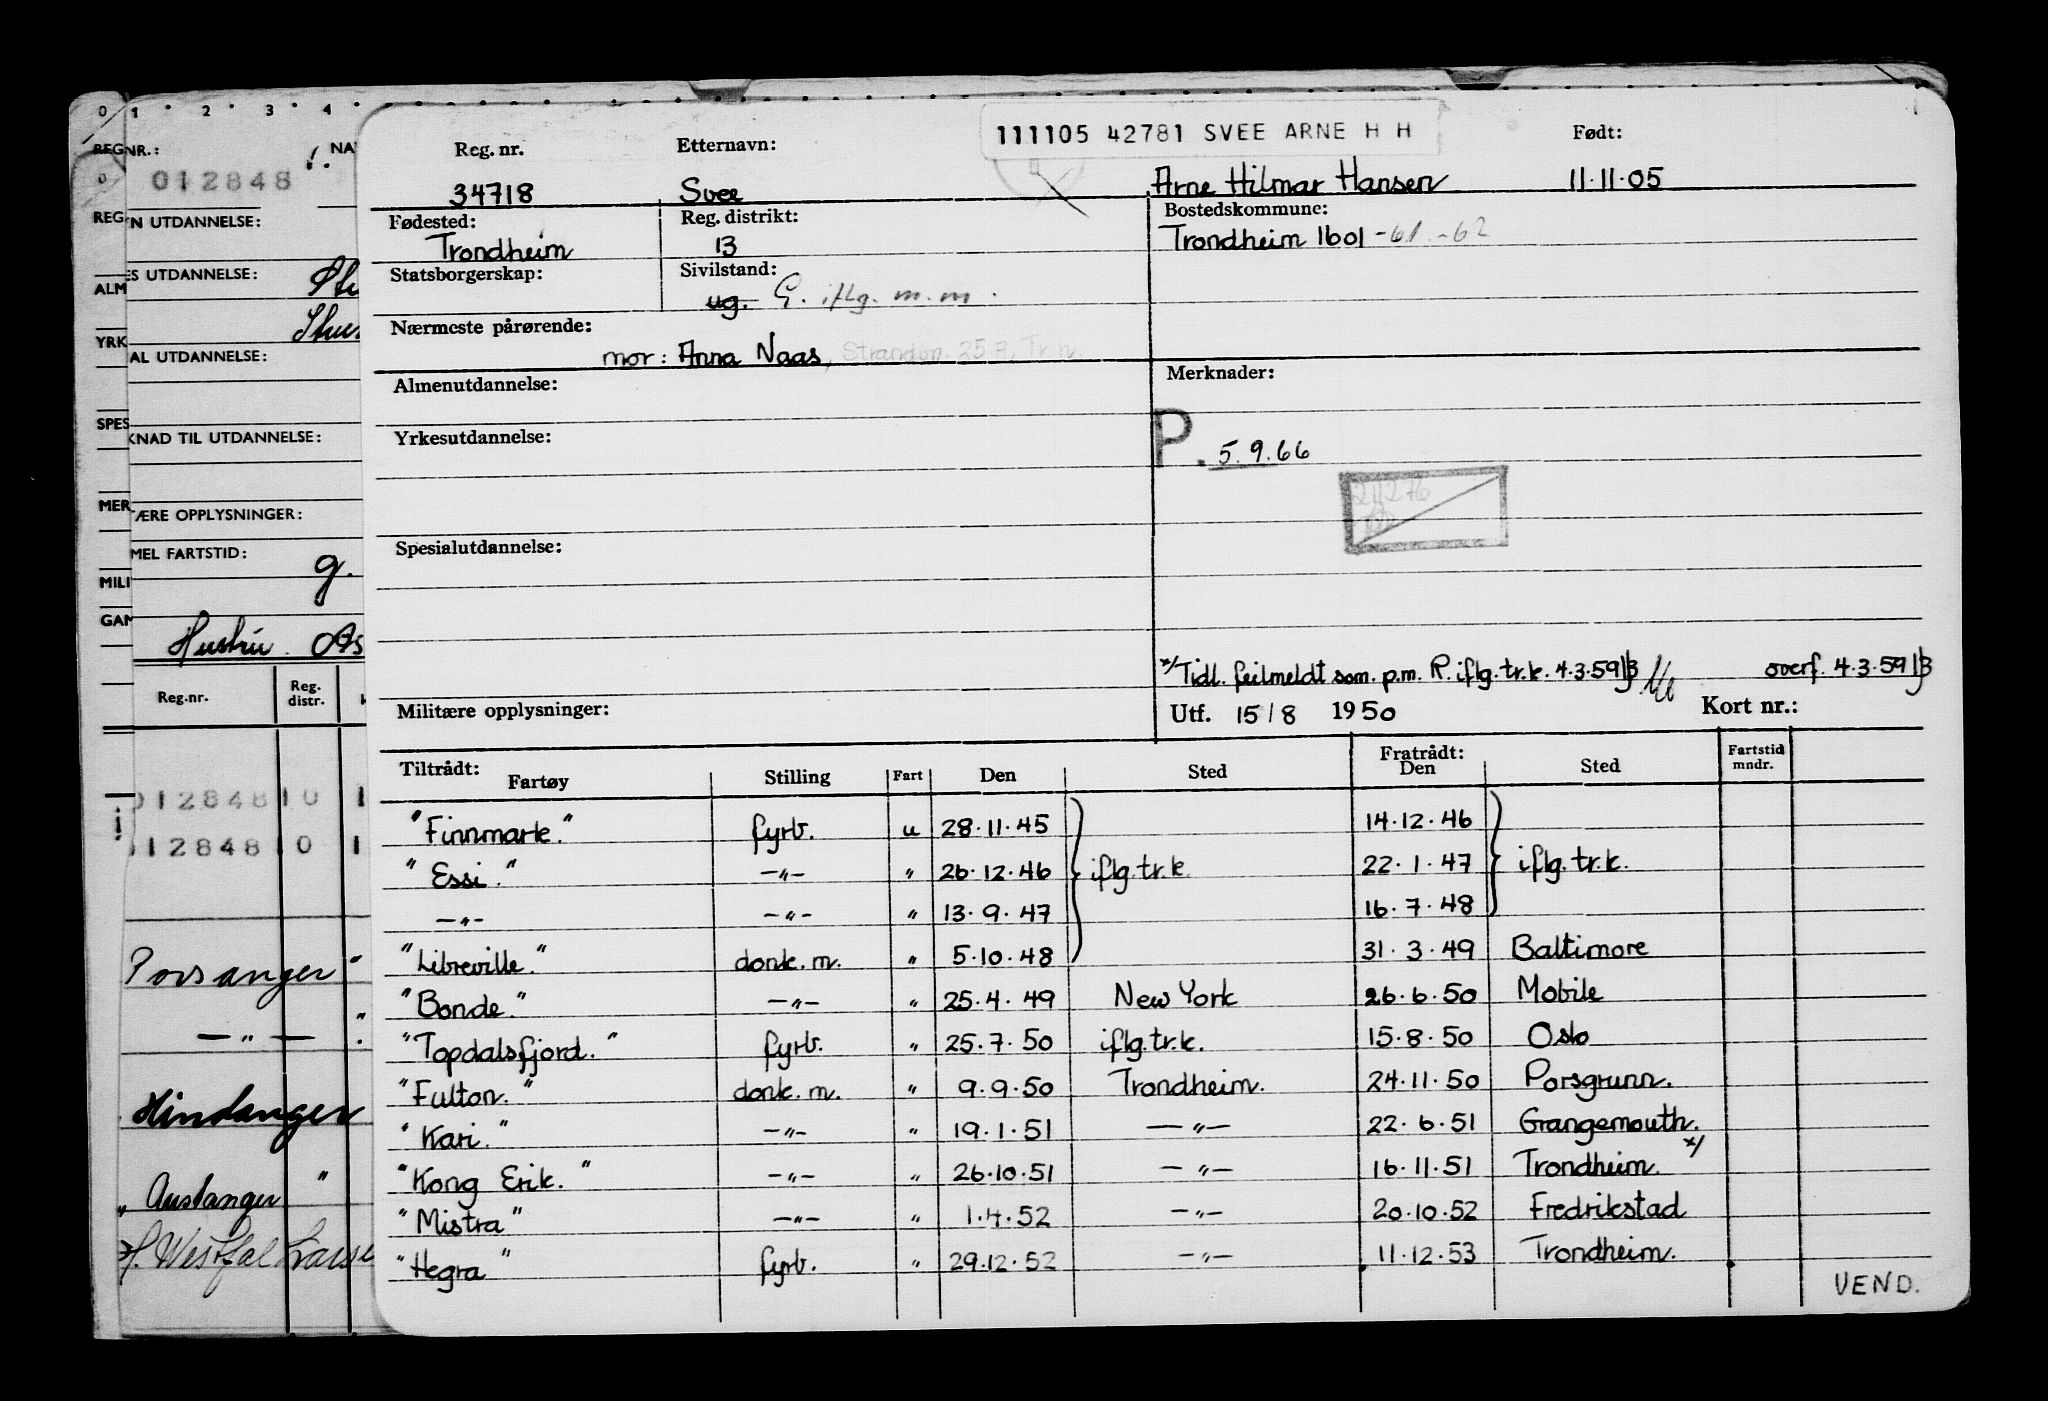 0 1 2 3 4
REGNR.: NA
012848
REG N UTDANNELSE:
ES UTDANNELSE:
ALM
YRK
AL UTDANNELSE:
SPES
KNAD TIL UTDANNELSE:
MER
ÆRE OPPLYSNINGER:
MEL FARTSTID:
MILI
g.
GAM
Hustru.
Reg.nr. Reg. distr.
012848 0 1
012848 0 1
Porsanger "
— " —
Hindanger
" Austanger "
H. Westfal Larse
111105 42781 SVEE ARNE H H
Reg. nr. Etternavn: Født:
34718 Svee Arne Hilmar Hansen 11.11.05
Fødested: Reg. distrikt: Bostedskommune:
Trondheim 13 Trondheim 1601 -61.-62
Statsborgerskap: Sivilstand:
ug. G. iflg. m.m.
Nærmeste pårørende:
mor: Anna Naas,
Almenutdannelse: Merknader:
Yrkesutdannelse: P. 5.9.66
Spesialutdannelse:
x/ Tidl. feilmeldt som. p.m. R. iflg. tr.k. 4.3.59 overf. 4.3.59
Militære opplysninger: Utf. 15/8 1950 Kort nr.:
Tiltrådt: Fratrådt: Fartstid mndr.
Fartøy Stilling Fart Den Sted Den Sted
"Finnmark." fyrb. u 28.11.45 14.12.46
"Essi." —"— " 26.12.46 iflg.tr.k. 22.1.47 iflg.tr.k.
—"— —"— " 13.9.47 16.7.48
"Libreville." donk.m. " 5.10.48 31.3.49 Baltimore
"Bonde." —"— " 25.4.49 New York 26.6.50 Mobile
"Topdalsfjord." fyrb. " 25.7.50 iflg.tr.k. 15.8.50 Oslo
"Fulton." donk.m. " 9.9.50 Trondheim. 24.11.50 Porsgrunn.
"Kari." —"— " 19.1.51 —"— 22.6.51 Grangemouth.
"Kong Erik." —"— " 26.10.51 —"— 16.11.51 Trondheim. x/
"Mistra" —"— " 1.4.52 —"— 20.10.52 Fredrikstad
"Hegra" fyrb. " 29.12.52 —"— 11.12.53 Trondheim.
VEND.